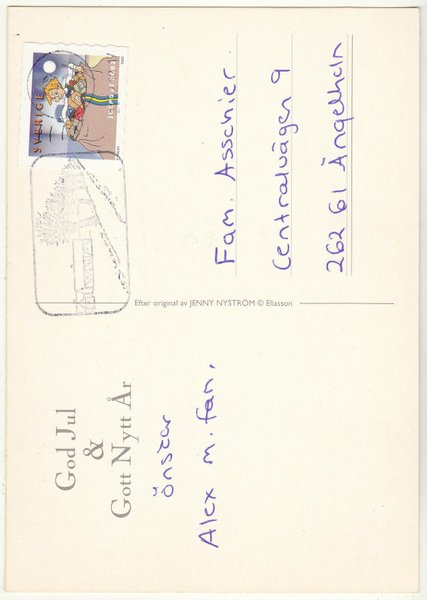 God Jul
&
Gott Nytt År
önskar
Alex m. fam.
Efter original av JENNY NYSTRÖM © Eliasson
SVERIGE
Fam. Asschier.
Centralvägen 9
262 61 Ängelholm